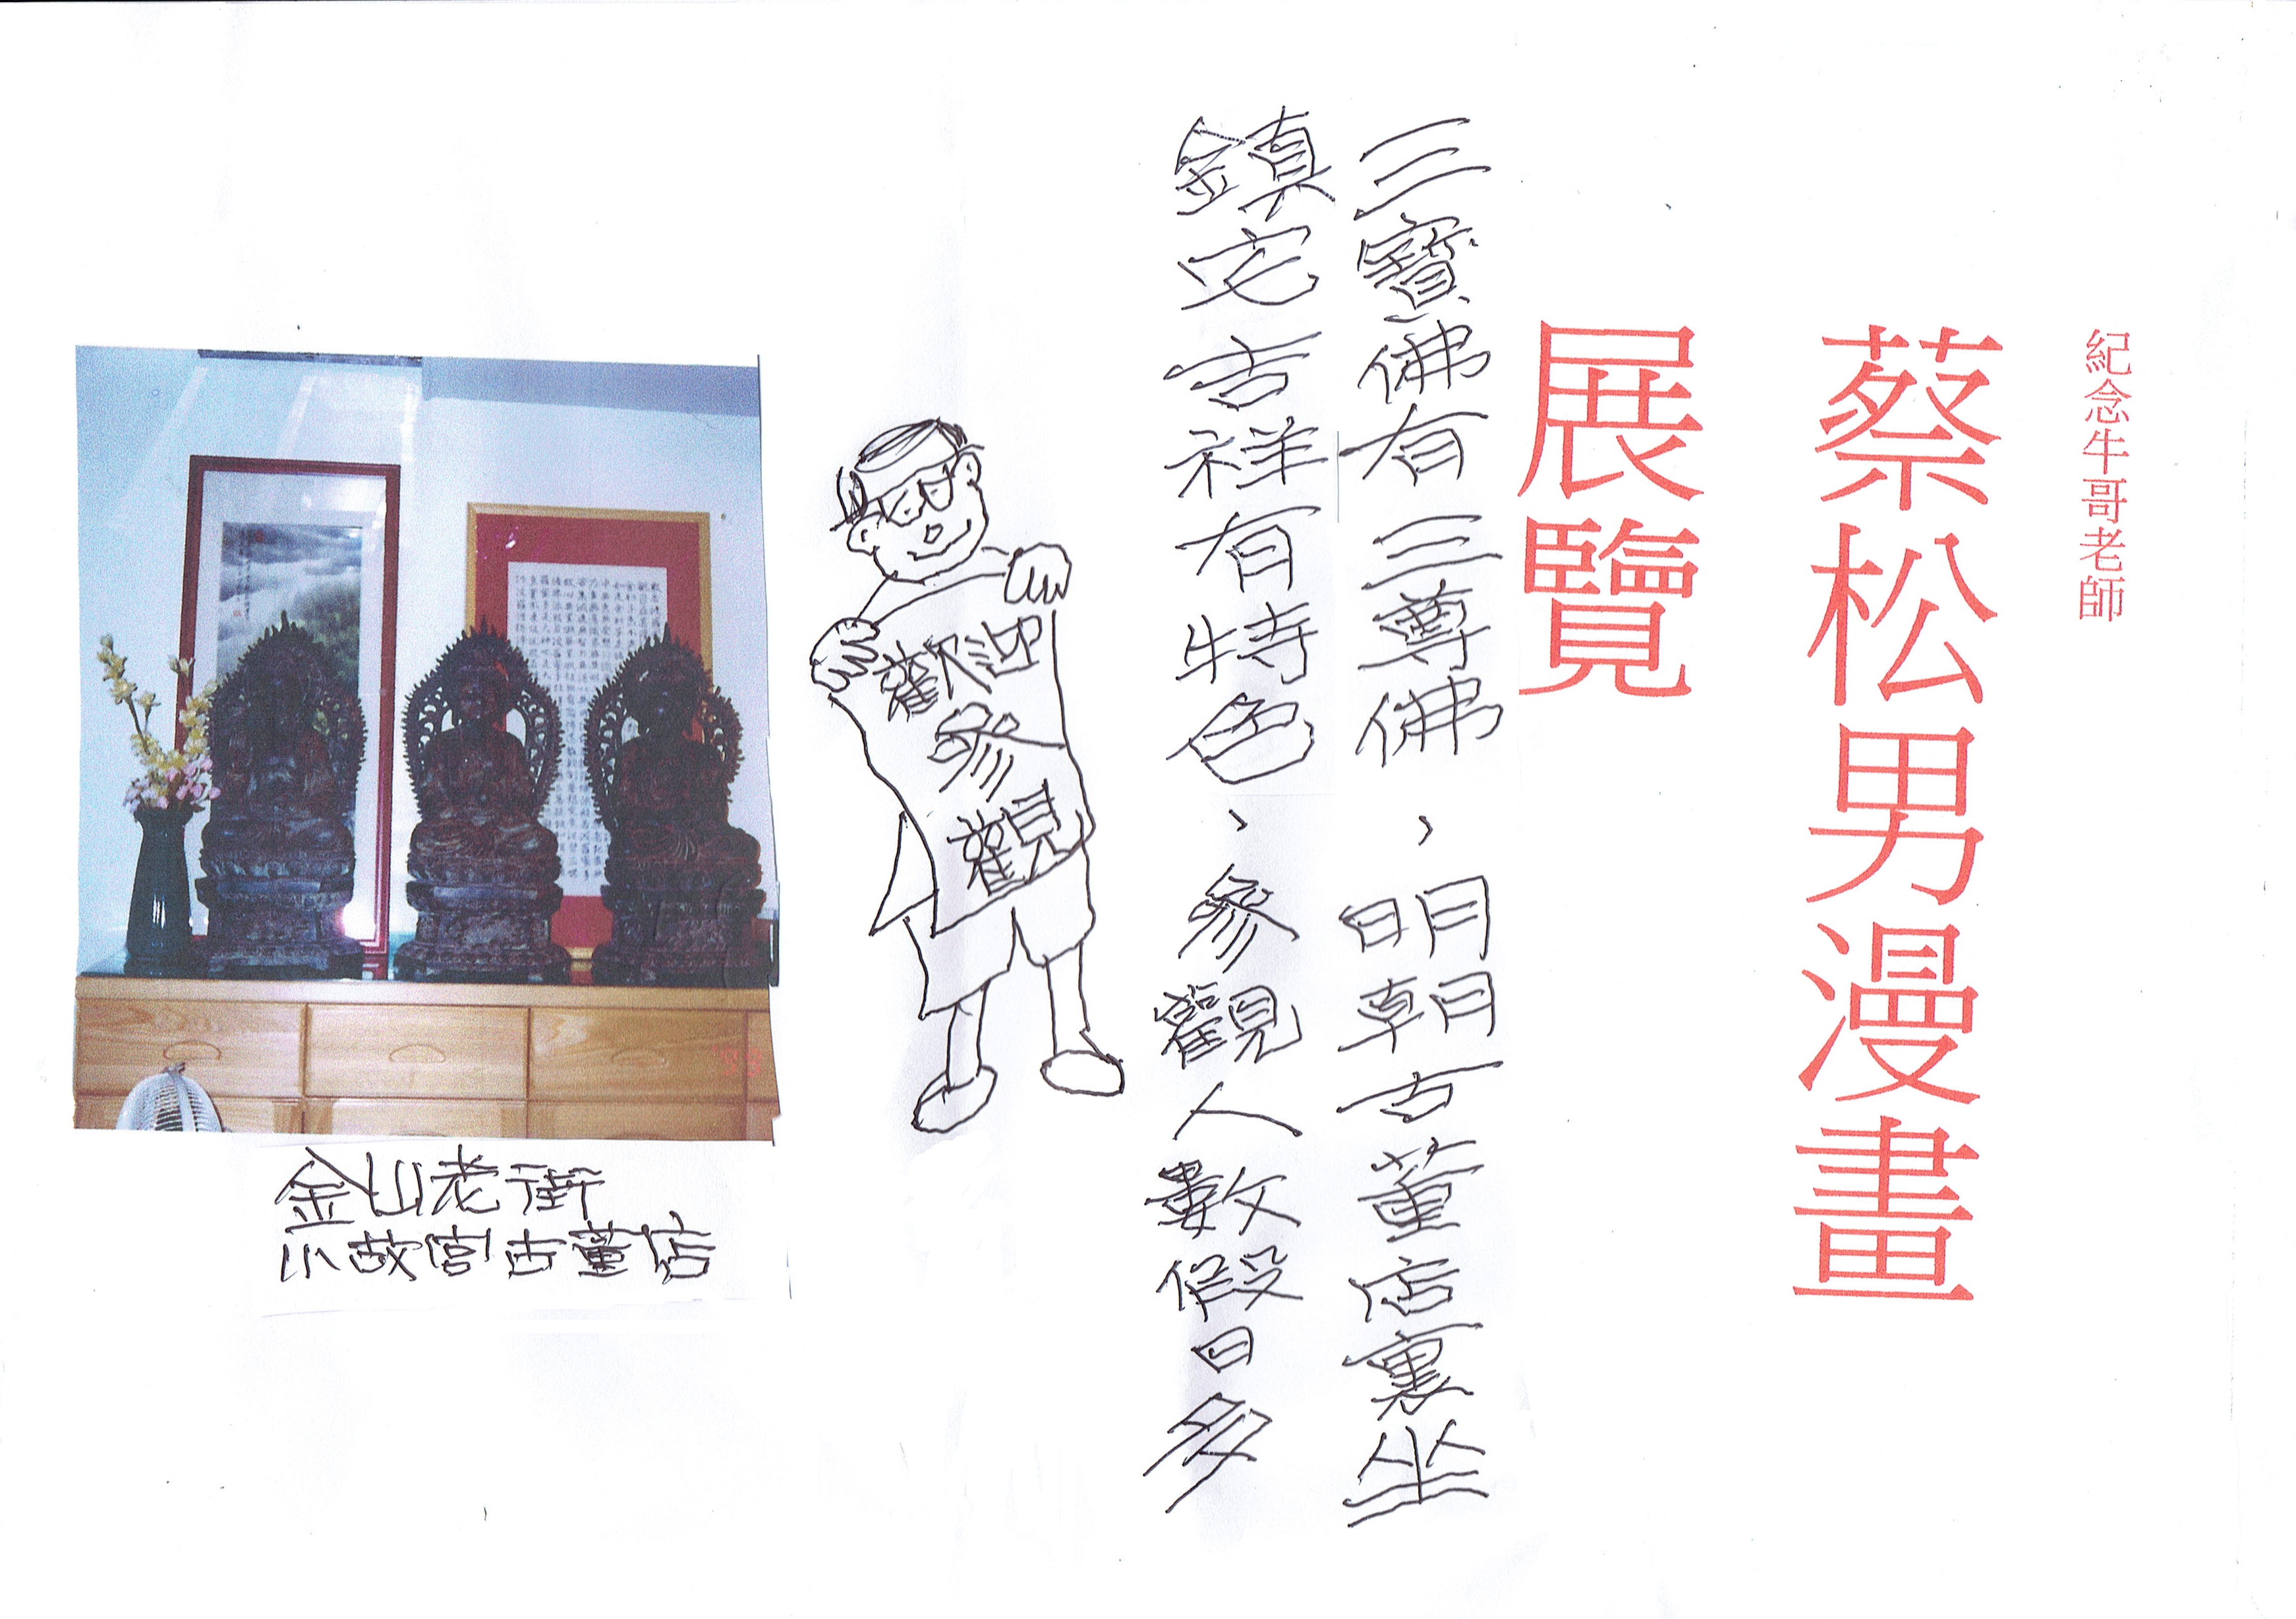 紀念牛哥老師
蔡松男漫畫
展覽
三寶佛有三尊佛、明朝古董店裏坐
鎮宅吉祥有特色、參觀人數假日多
歡迎
參
觀
金山老街
小故宮古董店